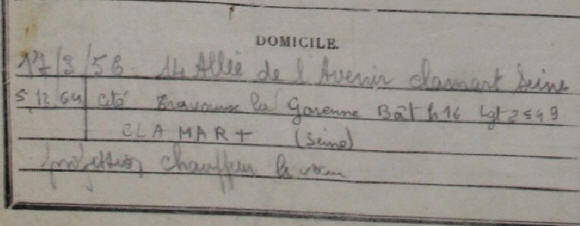 DOMICILE.
17/3/56 14 Allée de l'Avenir Clamart Seine
5.12.64 cité la Garenne Bât h 16 Lgt 2549
CLAMART (Seine)
profession chauffeur